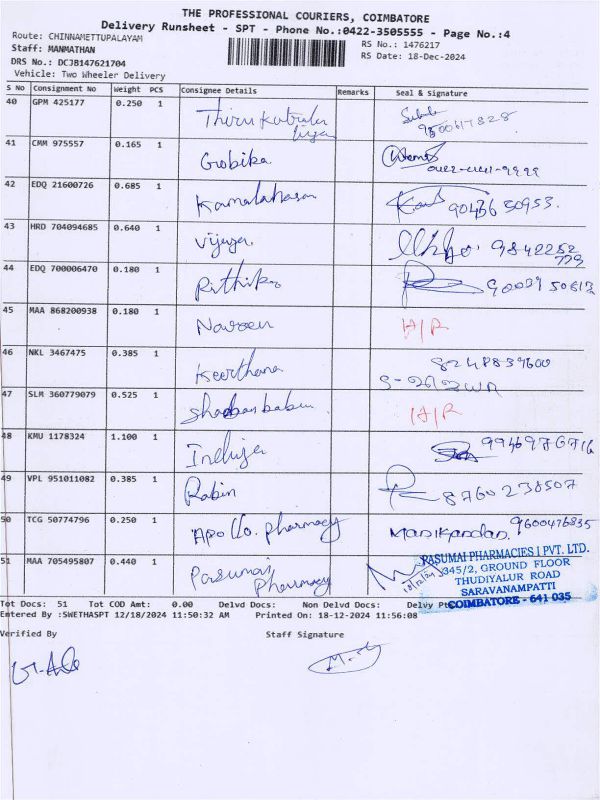 THE PROFESSIONAL COURIERS, COIMBATORE
Delivery Runsheet - SPT - Phone No.:0422-3505555 - Page No.:4
Route: CHINNAMETTUPALAYAM
RS No.: 1476217
Staff: MANMATHAN
RS Date: 18-Dec-2024
DRS No.: DCJB147621704
Vehicle: Two Wheeler Delivery
S No Consignment No Weight PCS Consignee Details Remarks Seal & Signature
40 GPM 425177 0.250 1 Thiru
41 CMM 975557 0.165 1 Gobika
42 EDQ 21600726 0.685 1 Kamalahasan 90436 50953.
43 HRD 704094685 0.640 1 Vijaya. 9842252
44 EDQ 700006470 0.180 1 Rithika
45 MAA 868200938 0.180 1 Naveen H/R
46 NKL 3467475 0.385 1 Keerthana
47 SLM 360779079 0.525 1 H/R
48 KMU 1178324 1.100 1
49 VPL 951011082 0.385 1 Robin 8760238507
50 TCG 50774796 0.250 1 Apollo. Pharmacy Manikandan. 9600476835
51 MAA 705495807 0.440 1 Pasumai Pharmacy
PASUMAI PHARMACIES I PVT. LTD.
345/2, GROUND FLOOR
THUDIYALUR ROAD
SARAVANAMPATTI
COIMBATORE - 641 035
Tot Docs: 51 Tot COD Amt: 0.00 Delvd Docs: Non Delvd Docs: Delvy
Entered By :SWETHASPT 12/18/2024 11:50:32 AM Printed On: 18-12-2024 11:56:08
Verified By Staff Signature